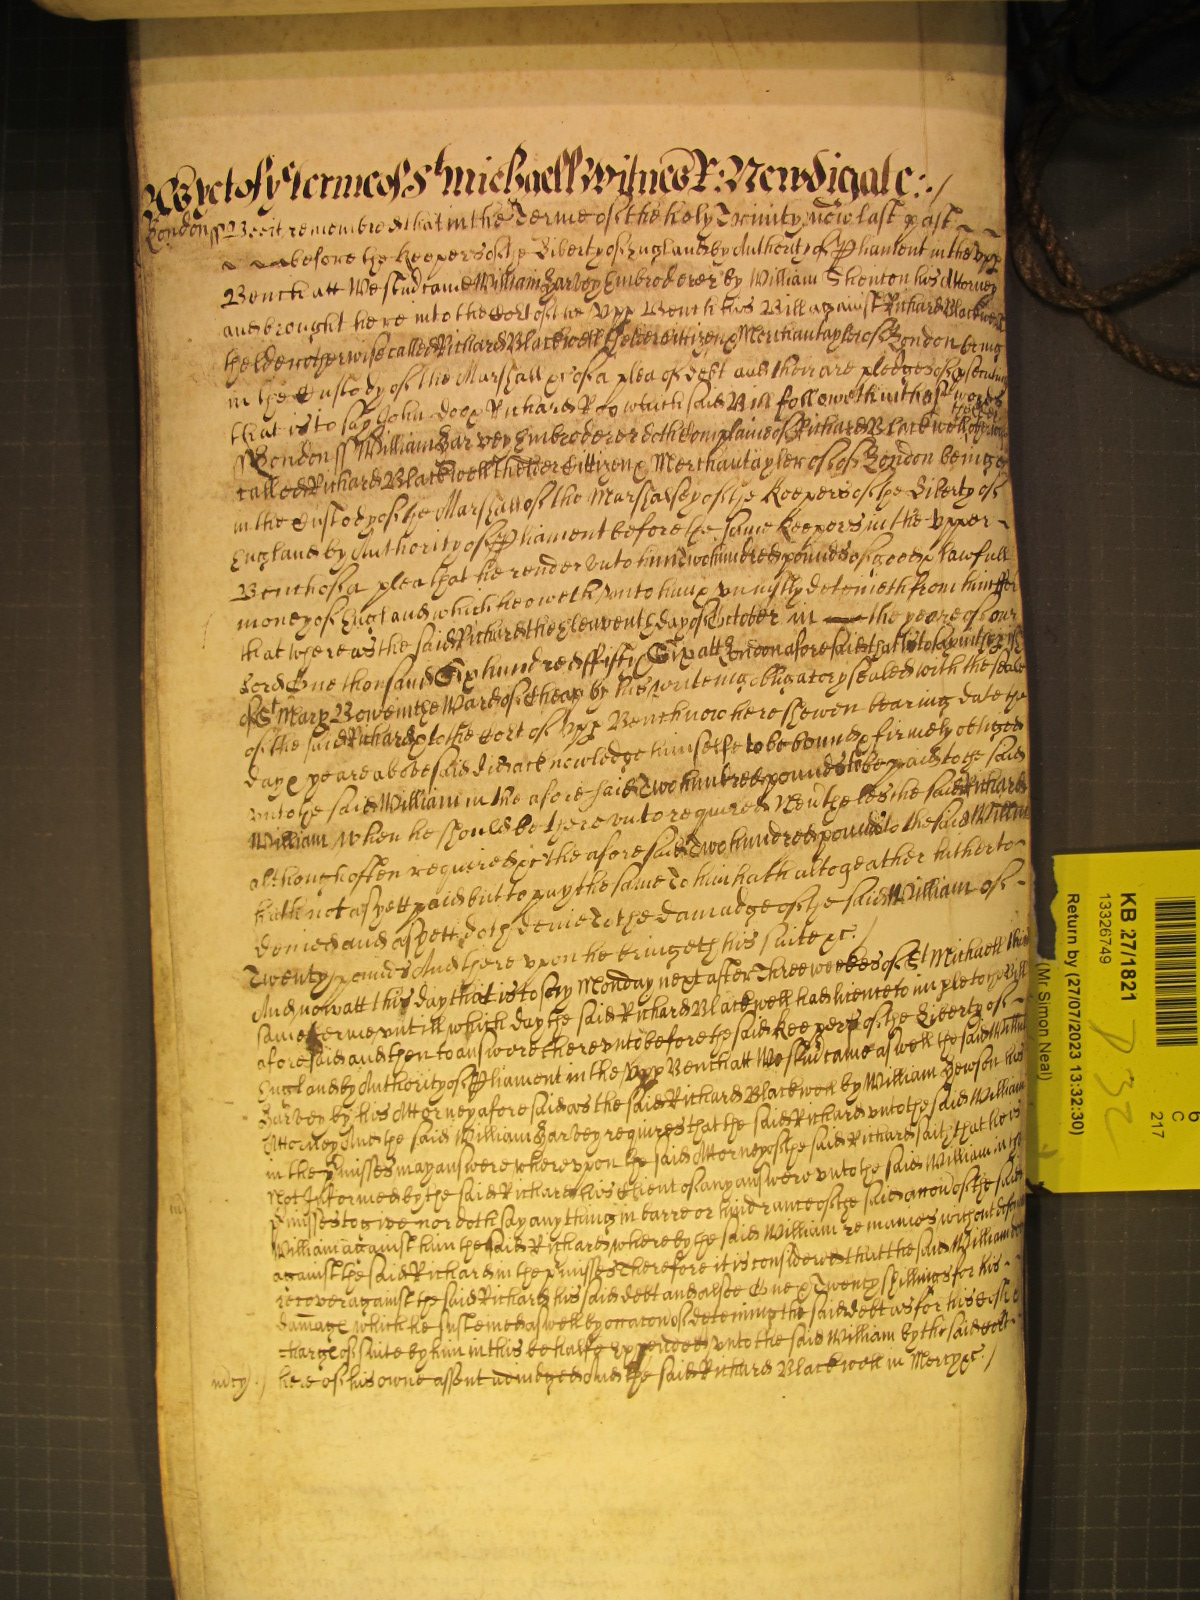 As yet of ye Terme of St Michaell Witnes R: Newdigate :./
London ss Be it remembred that in the Terme of the holy Trinity now last past
before the Keepers of the Liberty of England by Authority of Parliament in the upp
Bench att Westm came William Harvey Embroderer by William Shenton his Attorney
and brought here into the Cort of the Upp Bench his Bill against Richard Blackwell
the elder otherwise called Richard Blackwell the elder Cittizen & Merchantaylor of London being
in the Custody of the Marshall &c of a plea of debt and there are pledges of prosecuting
that is to say John Doo & Richard Roo which said Bill followeth in these words
London ss William Harvey Embroderer doth complaine of Richard Blackwell the elder otherwise
called Richard Blackwell the elder Cittizen & Merchantayler of London being
in the Custody of the Marshall of the Marshalsey of the Keepers of the Liberty of
England by Authority of Parliament before the same Keepers in the Upper
Bench of a plea that he render unto him two hundred pounds of good & lawfull
money of England which he oweth unto him & unjustly deteineth from him For
that whereas the said Richard the Eleaventh day of October in the yeare of our
Lord One thousand Six hundred ffifty & Six att London aforesaid that is to say in the prish
of St Mary Bowe in the Ward of Cheap by his writeing obligatory sealed with the seale
of the said Richard & to the Cort of Upp Bench now here shewen bearing date the
day & yeare abovesaid did acknowledge himselfe to be bound & firmely obliged
unto the said William in the aforesaid Two hundred pounds to be paid to the said
William when he should be thereunto required Nevtheles the said Richard
although often required &c the aforesaid Two hundred pounds to the said William
hath not as yett paid but to pay the same to him hath altogeather hitherto
denied and as yett doth denie To the damadge of the said William of
Twenty pounds And thereupon he bringeth his suite &c./
And now att this day that is to say Monday next after Three weekes of St Michaell this
same terme untill which day the said Richard Blackwell had licence to imple to the Bill
aforesaid and then to answere thereunto before the said Keepers of the Liberty of
England by Authority of Parliament in the Upp Bench att Westm came as well the said William
Harvey by his Attorney aforesaid as the said Richard Blackwell by William Hewson his
Attorney And the said William Harvey requires that the said Richard unto the said William
in the pmisses may answere whereupon the said Attorney of the said Richard saith that he is
not Informed by the said Richard his Client of any answere unto the said William in the
pmisses to give nor doth say anything in barre or hindrance of the said accon of the said
William against him the said Richard whereby the said William remaines without defence
against the said Richard in the pmisses Therefore it is considered that the said William doe
recover against the said Richard his said debt and alsoe One & Twenty shillings for his
damage which he susteined aswell by occacon of deteining the said debt as for his costs &
charges of suite by him in this behalfe expended unto the said William by the said Cort
mcy./ here of his owne assent adiudged And the said Richard Blackwell in Mercy &c./
KB 27/1821
13326749
Return by (27/07/2023 13:32:30)
(Mr Simon Neal)
C
217